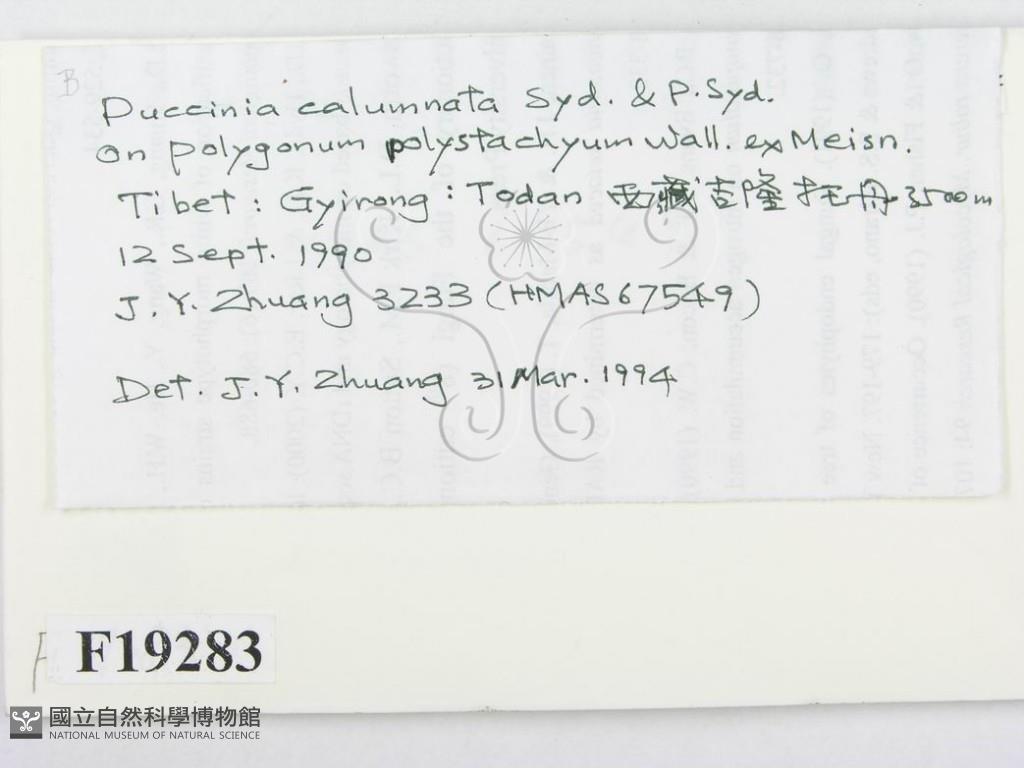 B
Puccinia calumnata Syd. & P. Syd.
on polygonum polystachyum Wall. ex Meisn.
Tibet : Gyirong : Todan 西藏吉隆托丹 3500m
12 Sept. 1990
J. Y. Zhuang 3233 (HMAS 67549)
Det. J. Y. Zhuang 31 Mar. 1994
F19283
國立自然科學博物館
NATIONAL MUSEUM OF NATURAL SCIENCE